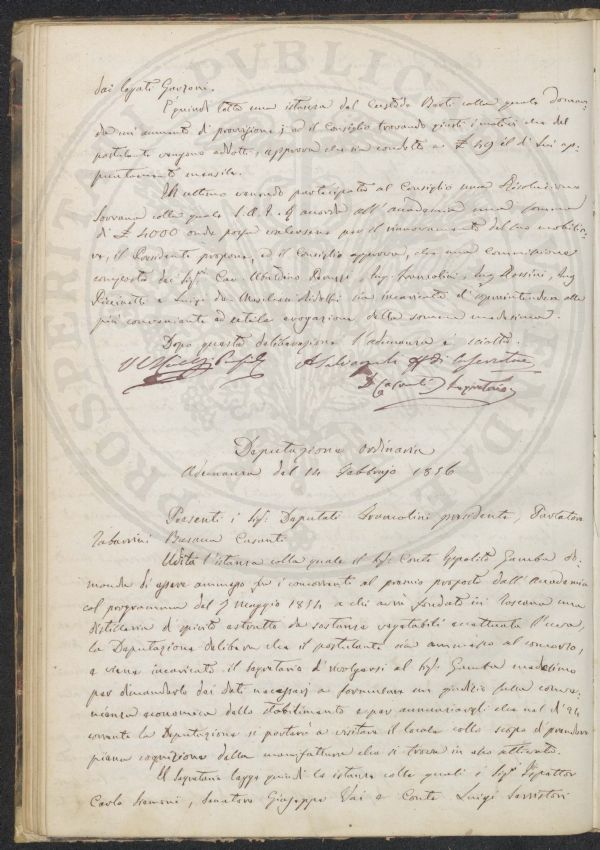 dai legati Garzoni.
E quindi letta una istanza del Custode Barti colla quale doman-
da un aumento di provvisione; ed il Consiglio trovando giusti i motivi che dal
postulante vengono addotti, approva che sia condotto a £ 49 il di lui ap-
puntamento mensile.
In ultimo venendo partecipata al Consiglio una Risoluzione
Sovrana colla quale S.A.I. e R. accorda all'accademia una somma
di £ 4000 onde possa valersene per il rinnovamento del suo mobilia-
re, il Presidente propone, ed il Consiglio approva, che una commissione
composta dei Sigg. Cav. Ubaldino Peruzzi, Ing. Ing. Rossini, Ing
e Luigi de Ridolfi sia incaricata d'soprintendere alla
più conveniente ed utile erogazione della somma medesima.
Dopo questa deliberazione l'adunanza è sciolta.
Segretario
Deputazione ordinaria
Adunanza del 14 Febbrajo 1856
Presenti i Sigg. Deputati Francolini presidente, Parlatore
Tabarrini Busacca Casanti
Udita l'istanza colla quale il Sig. Conte Ippolito Gamba do-
manda di essere ammesso fra i concorrenti al premio proposto dall'Accademia
col programma del 7 maggio 1854 a chi avrà fondato in Toscana una
distilleria d'spirito estratto da sostanze vegetabili eccettuata l'uva,
la Deputazione delibera che il postulante sia ammesso al concorso,
e viene incaricato il segretario d'rivolgersi al Sig. Gamba medesimo
per dimandarlo dei dati necessarj a formulare un giudizio sulla conve-
nienza economica dello stabilimento e per annunziargli che nel dì 24
corrente la Deputazione si porterà a visitare il locale collo scopo d'prendere
piena cognizione della manifattura che si trova in esso attivata.
Il Segretario legge quindi la istanza colla quale i Sigg. Ispettor
Carlo Siemoni, Senatore Giuseppe Vai e Conte Luigi Serristori
PROSPERITATI PVBLICAE AVGENDAE